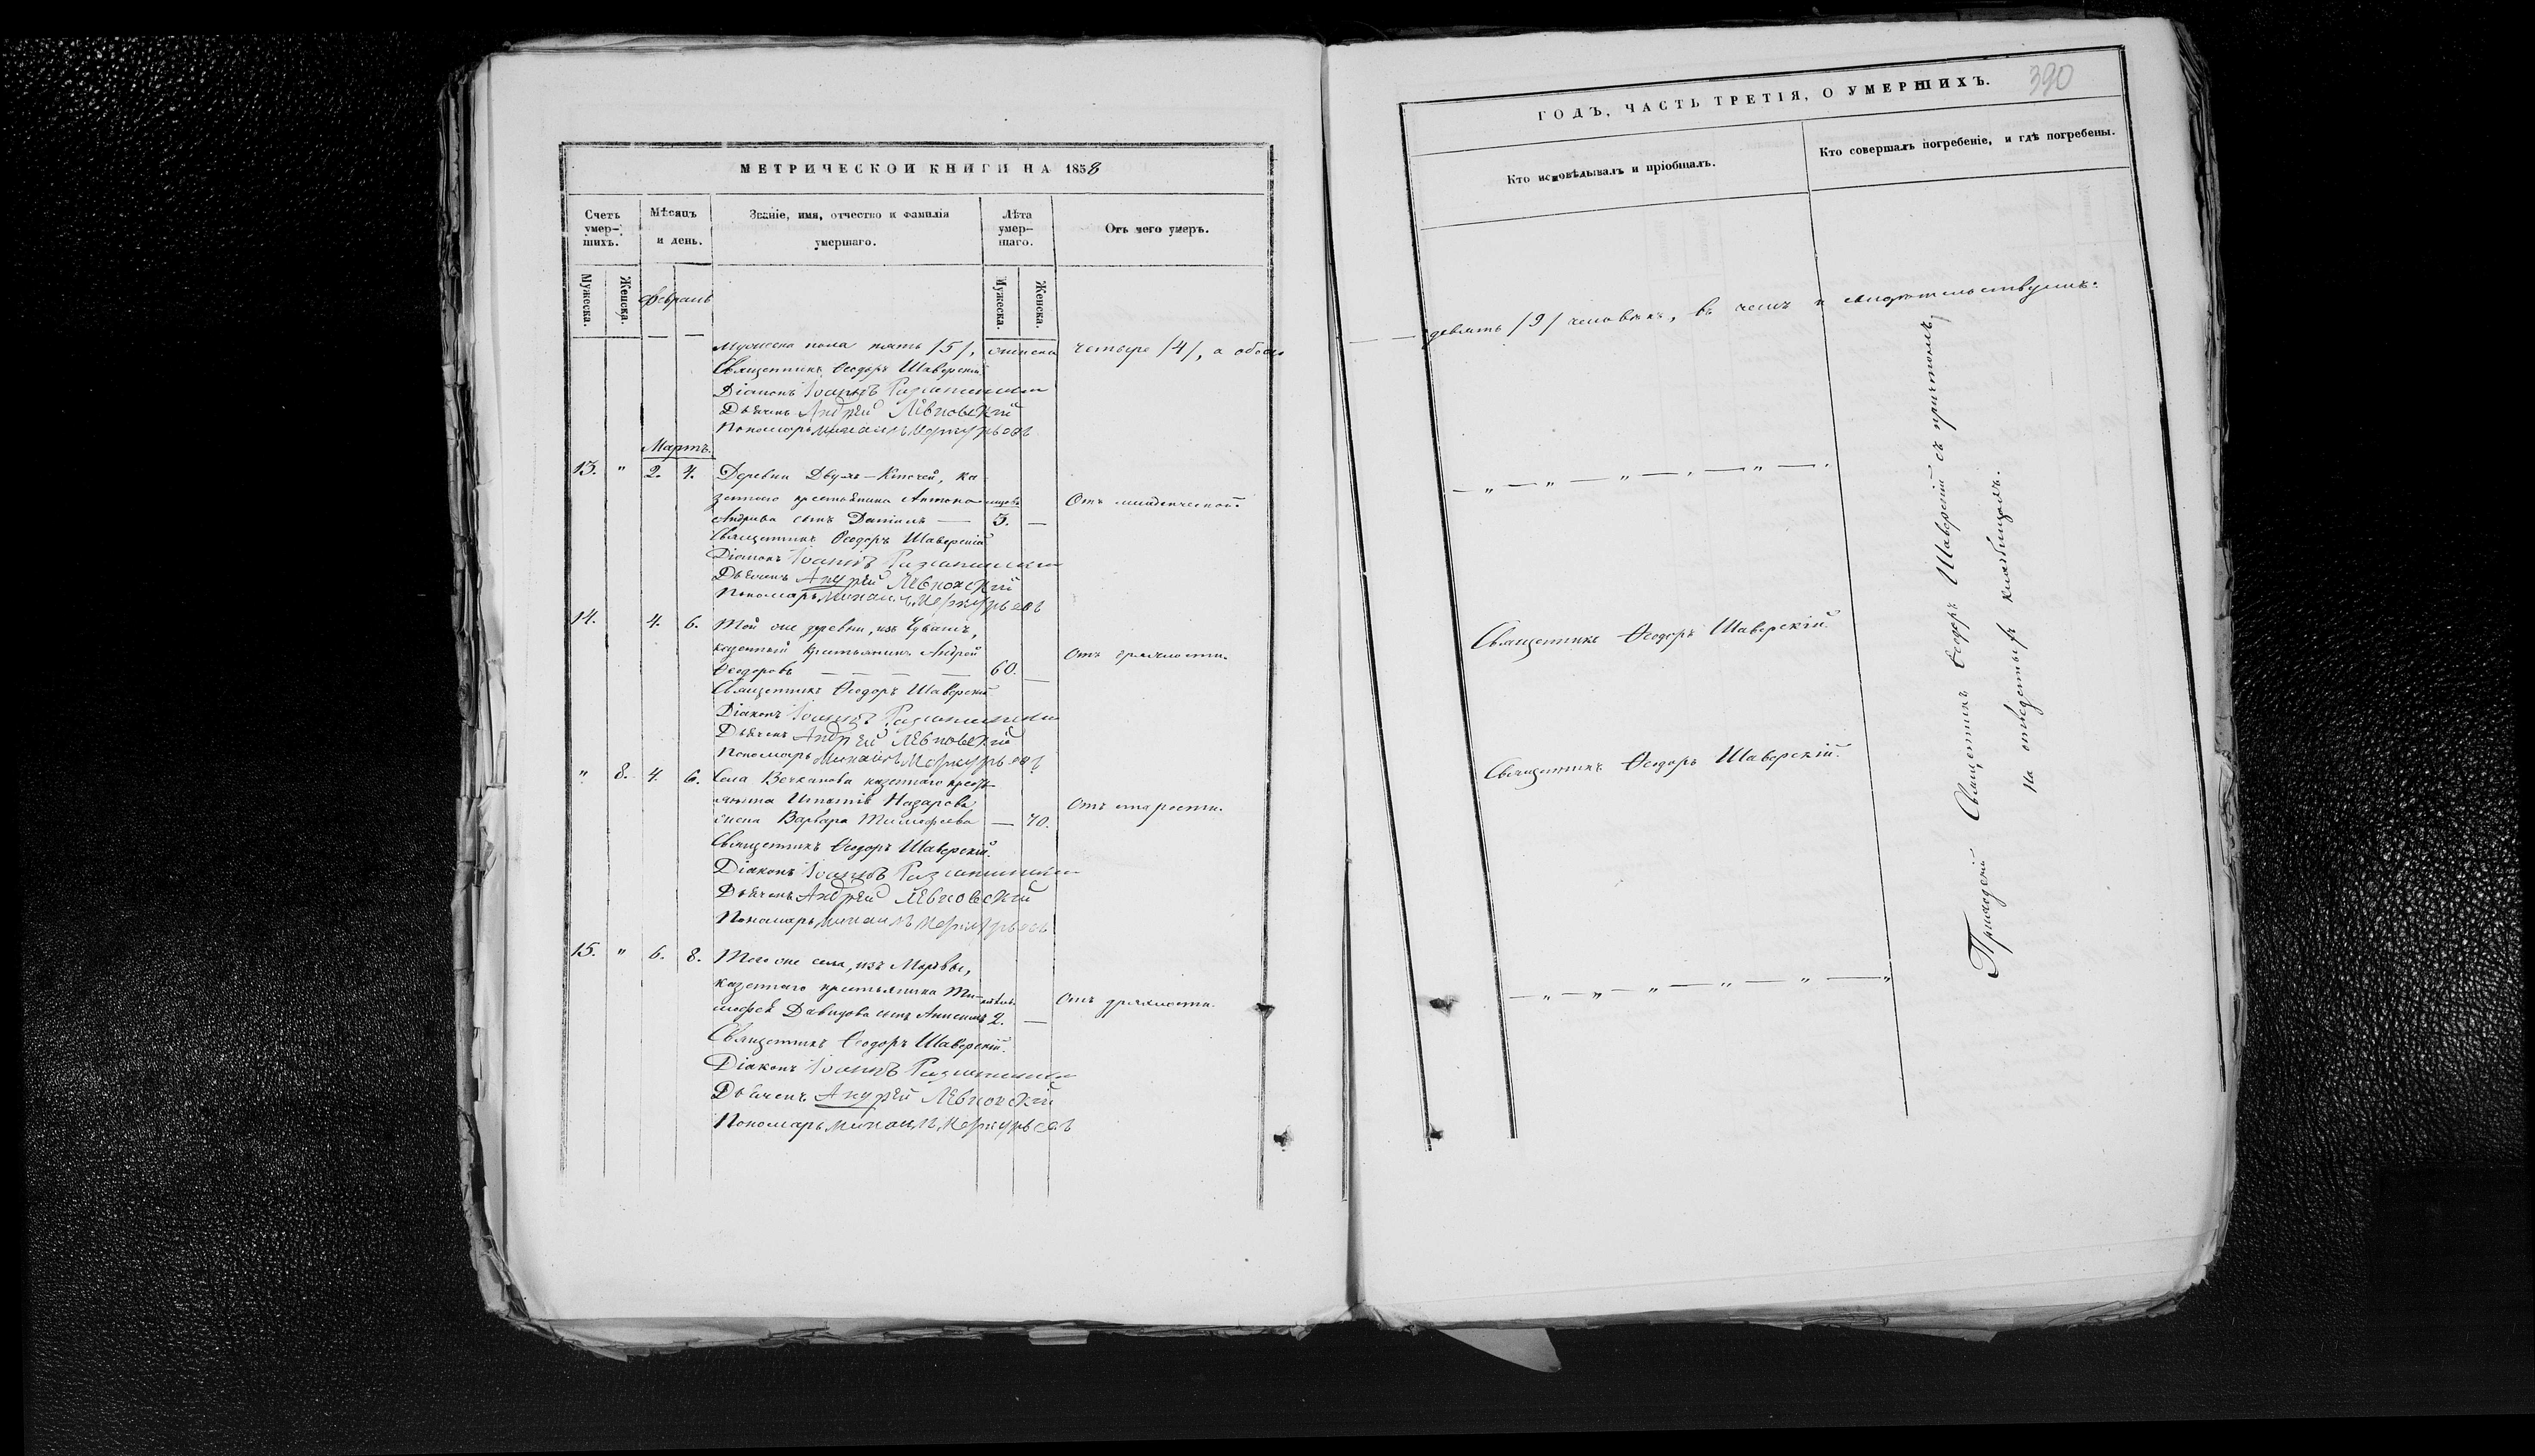 МЕТРИЧЕСКОЙ КНИГИ НА 1858
Счетъ умер-шихъ.
Мѣсяцъ и день.
Званіе, имя, отчество и фамилія умершаго.
Лѣта умер-шаго.
Отъ чего умеръ.
Мужеска.
Женска.
Мужеска.
Женска.
Февраль
Мужеска пола пять /5/, женска четыре /4/, а обоего
Священникъ Ѳеодоръ Шаверскій
Діаконъ Іоаннъ
Дьячекъ Андрей Лѣвковскій
Пономарь Михаилъ Меркурьевъ
Мартъ.
13. " 2. 4. Деревни Двухъ-Ключей, ка-
зеннаго крестьянина Антона
Андреева сынъ Даніилъ — 3. — Отъ младенческой.
Священникъ Ѳеодоръ Шаверскій
Діаконъ Іоаннъ
Дьячекъ Андрей Лѣвковскій
Пономарь Михаилъ Меркурьевъ
14. 4. 6. Той же деревни, изъ Чувашъ,
казенный крестьянинъ Андрей
Ѳеодоровъ — — — — 60. — Отъ дряхлости.
Священникъ Ѳеодоръ Шаверскій
Діаконъ Іоаннъ
Дьячекъ Андрей Лѣвковскій
Пономарь Михаилъ Меркурьевъ
" 8. 4. 6. Села Вечканова казеннаго кресть-
янина Игнатія Назарова
жена Варвара Тимофеева — 70. Отъ старости.
Священникъ Ѳеодоръ Шаверскій.
Діаконъ Іоаннъ
Дьячекъ Андрей Лѣвковскій
Пономарь Михаилъ Меркурьевъ
15. " 6. 8. Того же села, изъ Мордвы,
казеннаго крестьянина Ти-
мофея Давидова сынъ Анисимъ 2. — Отъ дряхлости.
Священникъ Ѳеодоръ Шаверскій.
Діаконъ Іоаннъ
Дьячекъ Андрей Лѣвковскій
Пономарь Михаилъ Меркурьевъ
ГОДЪ, ЧАСТЬ ТРЕТІЯ, О УМЕРШИХЪ.
390
Кто исповѣдывалъ и пріобщалъ.
Кто совершалъ погребеніе, и гдѣ погребены.
девять /9/ человѣкъ, въ чемъ и свидѣтельствуемъ:
Священникъ Ѳеодоръ Шаверскій.
Священникъ Ѳеодоръ Шаверскій.
Приходскій Священникъ Ѳеодоръ Шаверскій съ причтомъ,
на отведенномъ кладбищѣ.